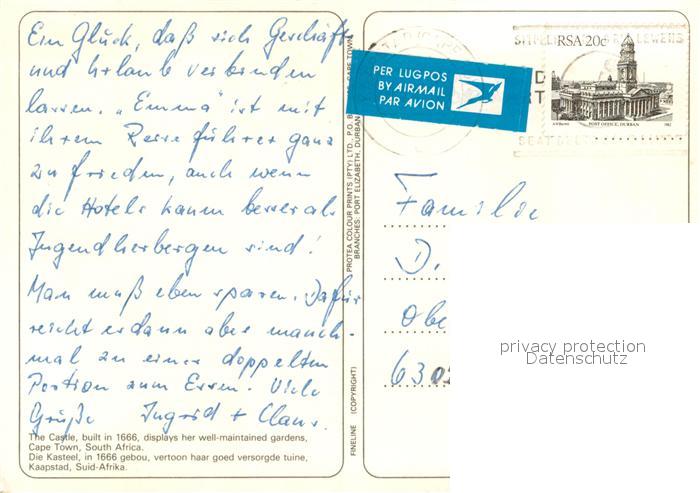 Ein Glück, daß sich Geschäft
und Urlaub verbinden
lassen. „Emma" ist mit
ihrem Reiseführer ganz
zufrieden, auch wenn
die Hotels kaum besser als
Jugendherbergen sind!
Man muß eben sparen. Dafür
reicht es dann aber manch-
mal zu einer doppelten
Portion zum Essen. Viele
Grüße Ingrid + Claus.
The Castle, built in 1666, displays her well-maintained gardens,
Cape Town, South Africa.
Die Kasteel, in 1666 gebou, vertoon haar goed versorgde tuine,
Kaapstad, Suid-Afrika.
PROTEA COLOUR PRINTS (PTY) LTD., P.O. CAPE TOWN
BRANCHES: PORT ELIZABETH, DURBAN
FINELINE (COPYRIGHT)
PER LUGPOS
BY AIRMAIL
PAR AVION
RSA 20c
POST OFFICE, DURBAN
1982
Familie
D.
Obe
630
privacy protection
Datenschutz